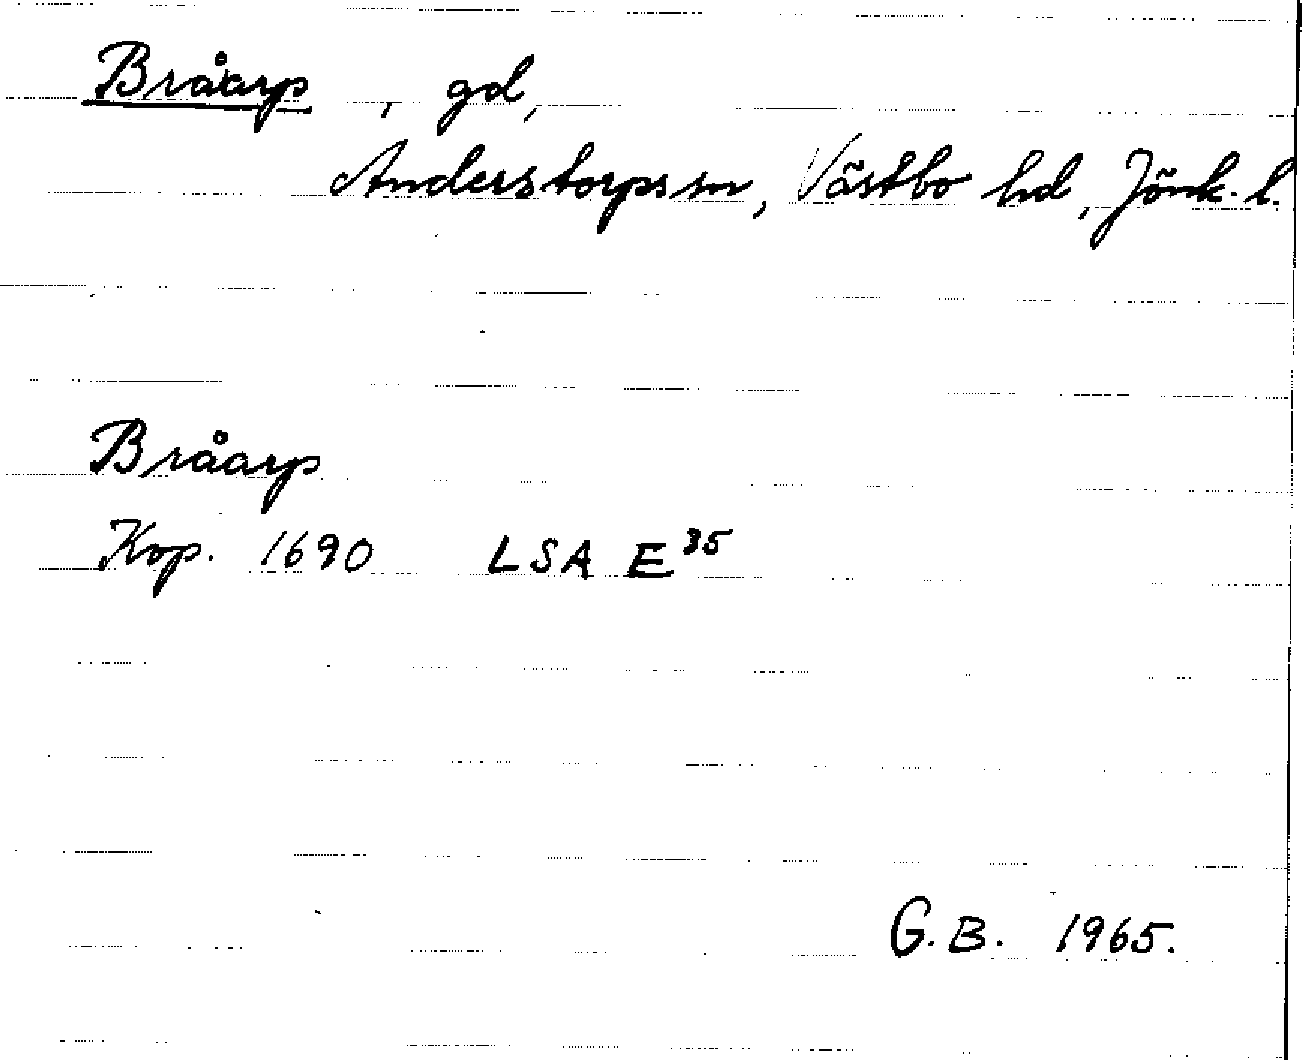 Bråarp, gd,
Anderstorps sn, Västbo hd, Jönk. l.
Bråarp
Kop. 1690 LSA E 35
G.B. 1965.